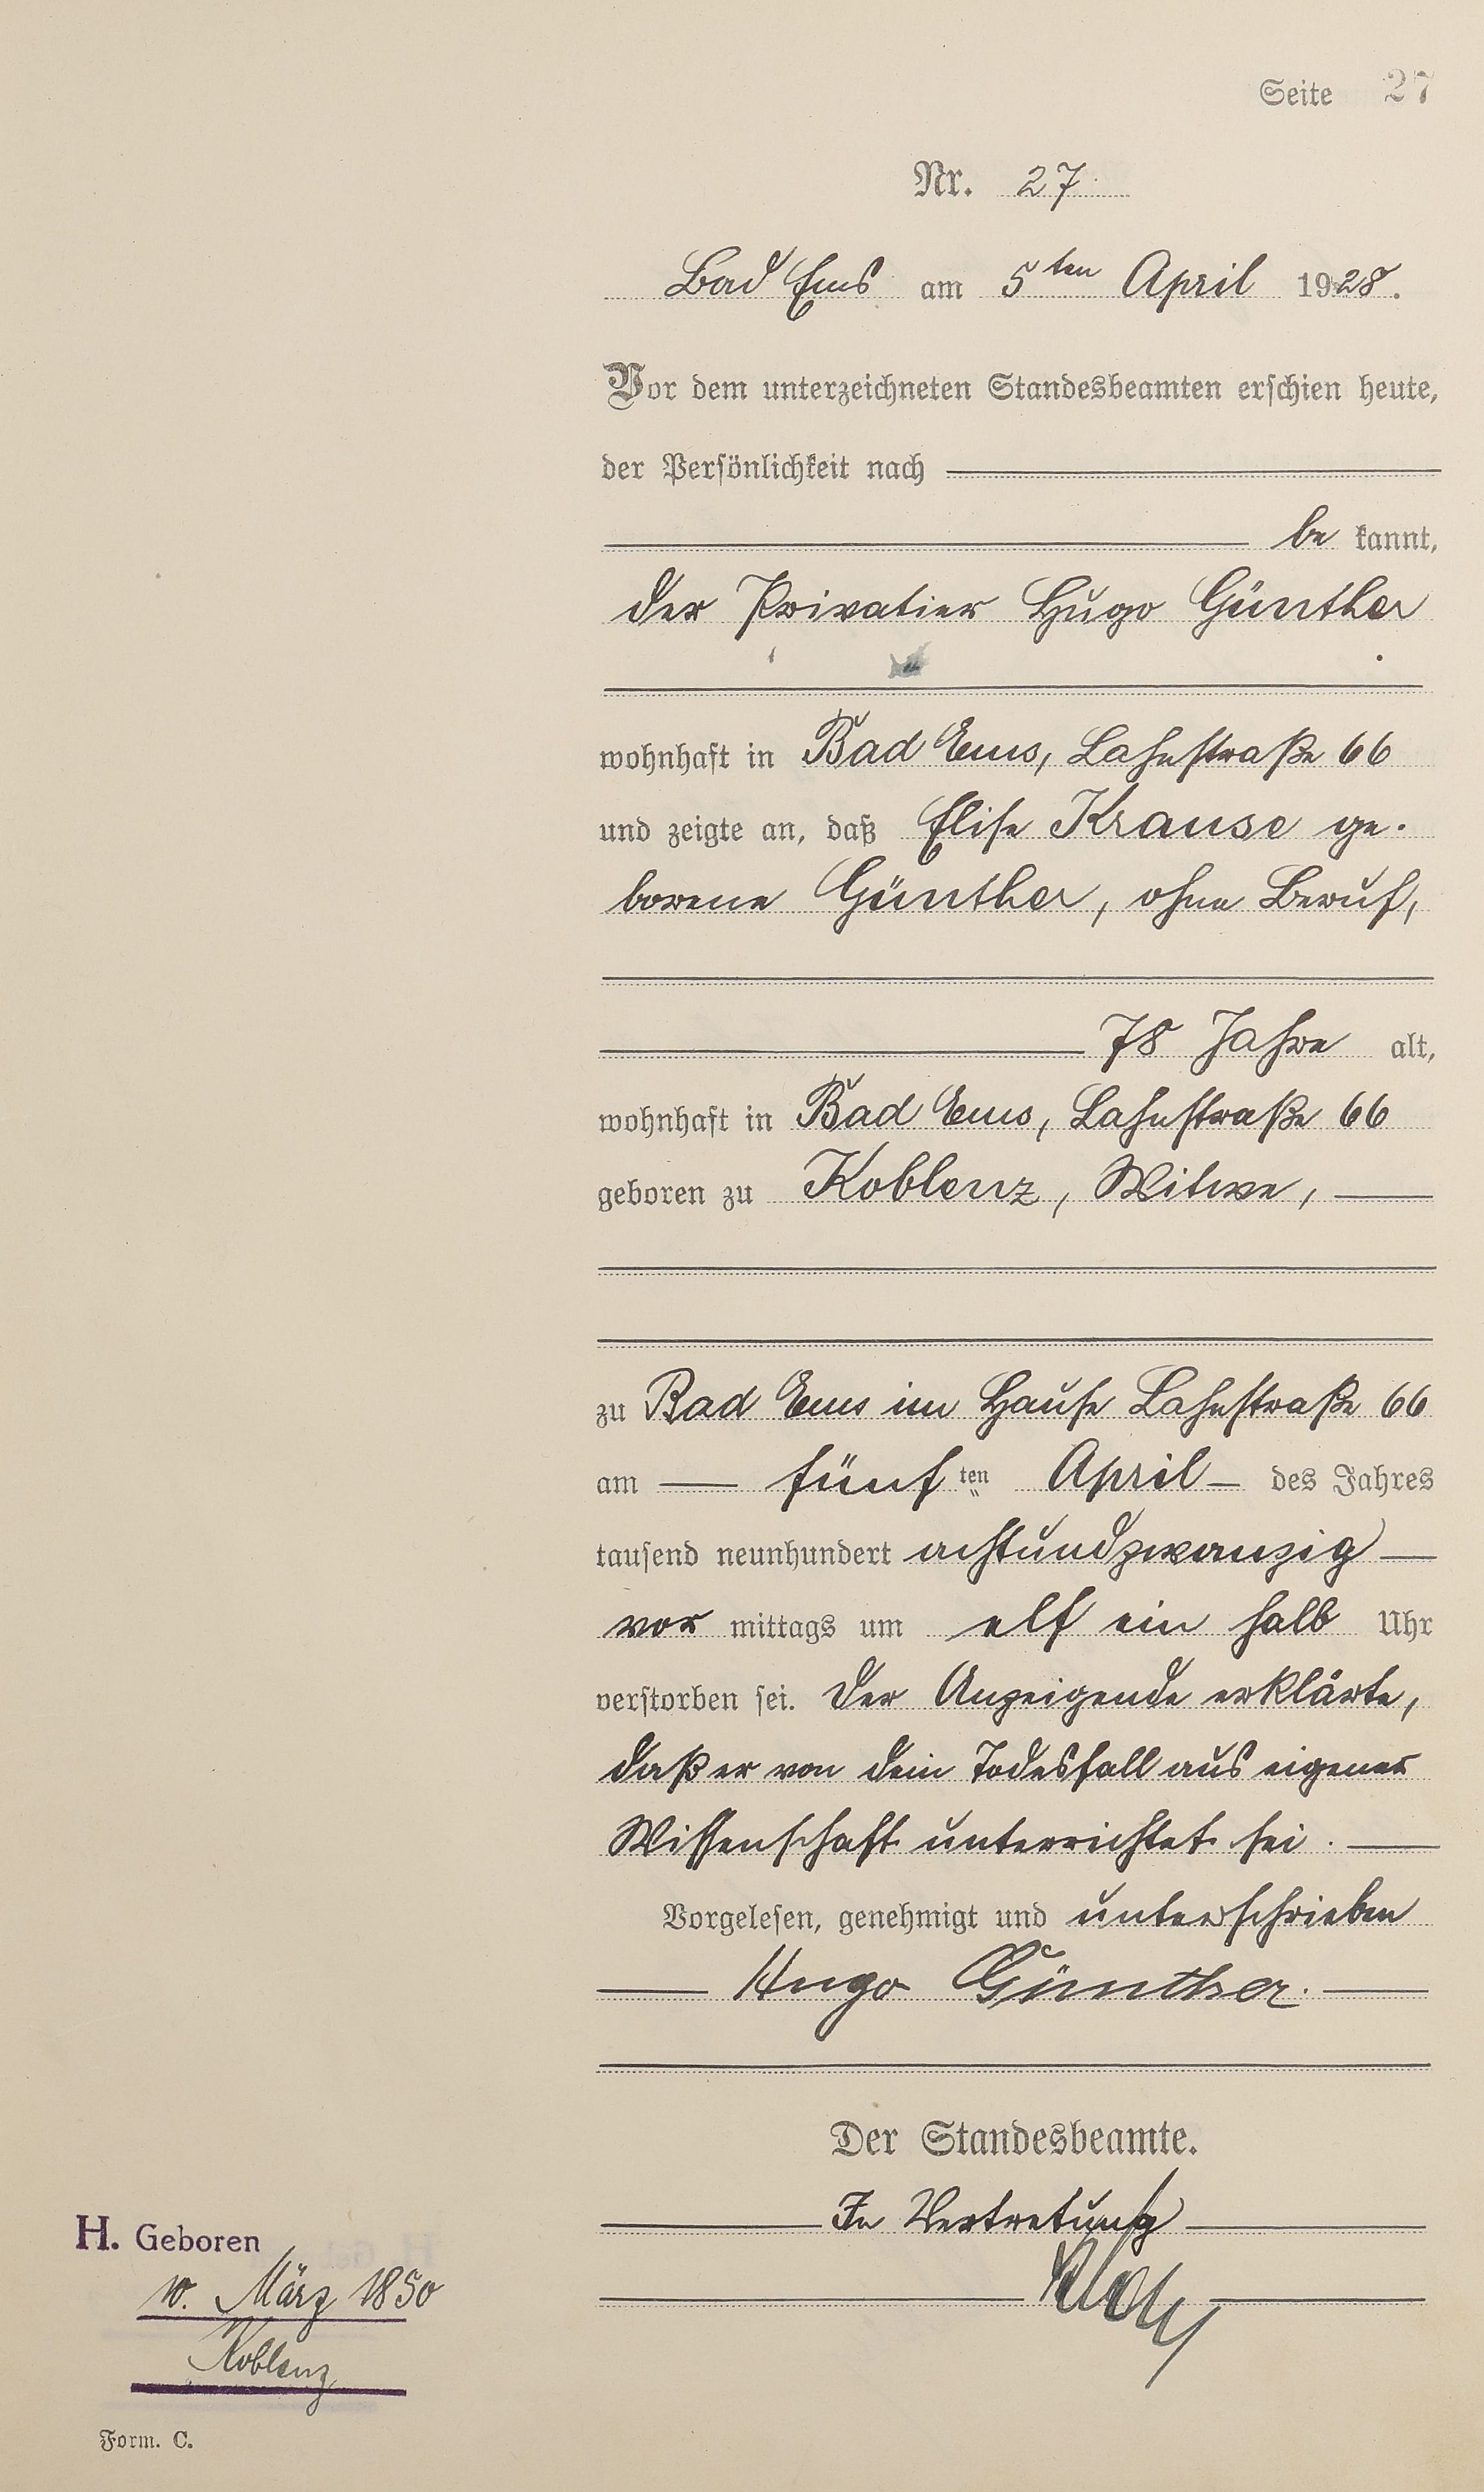 Seite 27
Nr. 27
Bad Ems am 5ten April 1928.
Vor dem unterzeichneten Standesbeamten erschien heute,
der Persönlichkeit nach
be kannt,
der Privatier Hugo Günther
wohnhaft in Bad Ems, Lahnstraße 66
und zeigte an, daß Elise Krause ge-
borene Günther, ohne Beruf,
78 Jahre alt,
wohnhaft in Bad Ems, Lahnstraße 66
geboren zu Koblenz, Witwe,
zu Bad Ems im Hause Lahnstraße 66
am fünf ten April des Jahres
tausend neunhundert achtundzwanzig
vor mittags um elf ein halb Uhr
verstorben sei. Der Anzeigende erklärte,
daß er von dem Todesfall aus eigener
Wissenschaft unterrichtet sei.
Vorgelesen, genehmigt und unterschrieben
Hugo Günther.
Der Standesbeamte.
In Vertretung
H. Geboren
10. März 1850
Koblenz
Form. C.